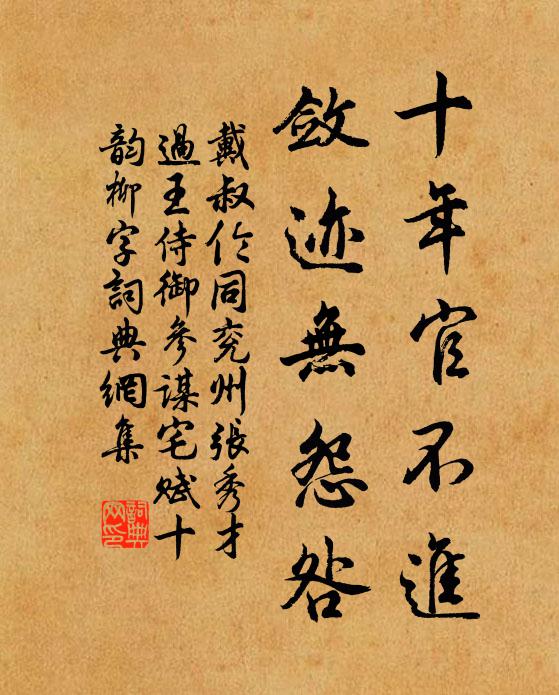 十年官不進
斂迹無怨咎
戴叔伦同兖州張秀才
過王侍御參謀宅賦十
韵柳字詞典網集
詞典网印